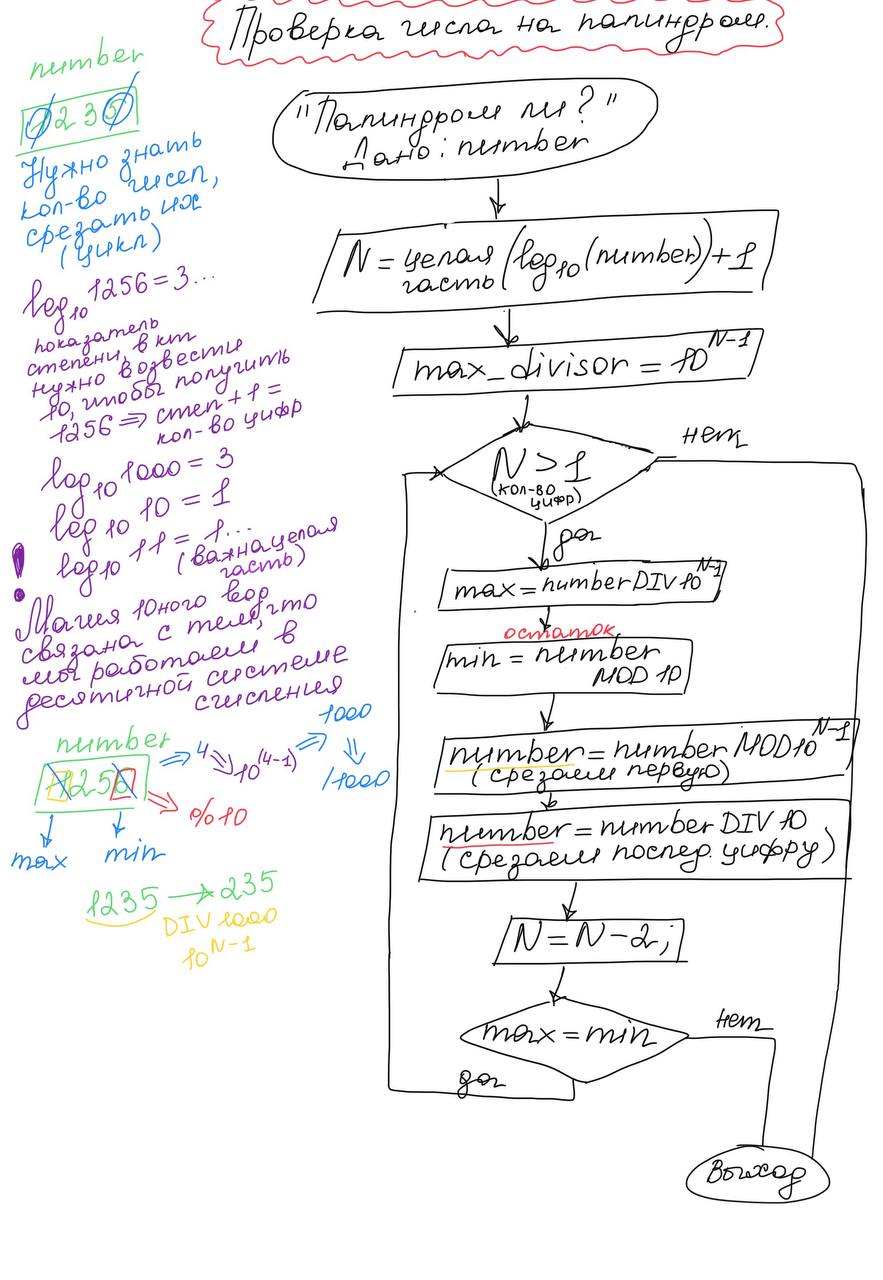 Проверка числа на палиндром.
number
1235
Нужно знать
кол-во чисел,
срезать их
(цикл)
log10 1256 = 3...
показатель
степени, в кт
нужно возвести
10, чтобы получить
1256 => степ + 1 =
кол-во цифр
log10 1000 = 3
log10 10 = 1
log10 11 = 1...
(важна целая
часть)
!
Магия 10ного log
связана с тем, что
мы работаем в
десятичной системе
счисления
number
1256 => 4 => 10^(4-1) => 1000
=> /1000
=> %10
max min
1235 → 235
DIV 1000
10^N-1
"Палиндром ли?"
Дано: number
N = целая часть (log10(number)) + 1
max_divisor = 10^N-1
N > 1
(кол-во
цифр)
нет
да
max = number DIV 10^N-1
остаток
min = number
MOD 10
number = number MOD 10^N-1
(срезаем первую)
number = number DIV 10
(срезаем послед. цифру)
N = N - 2;
max = min
нет
да
Выход